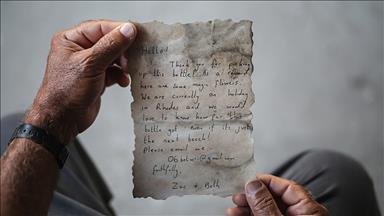 Hello!
Thank you for picking
up this bottle! As a reward
here are some magic flowers.
We are currently on holiday
in Rhodes and we would
love to know how far this
bottle got even if its just
the next beach!
Please email me
faithfully,
Zoe + Beth